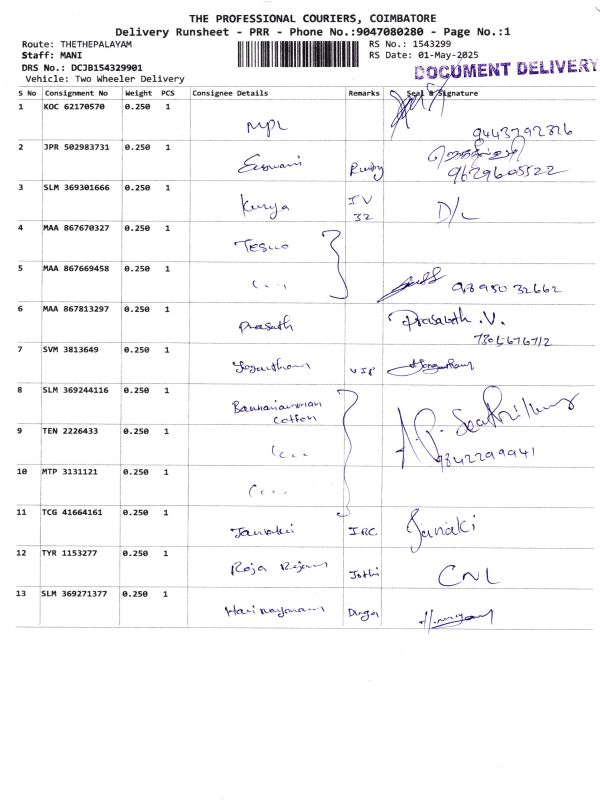 THE PROFESSIONAL COURIERS, COIMBATORE
Delivery Runsheet - PRR - Phone No.:9047080280 - Page No.:1
Route: THETHEPALAYAM
RS No.: 1543299
Staff: MANI
RS Date: 01-May-2025
DRS No.: DCJB154329901
DOCUMENT DELIVERY
Vehicle: Two Wheeler Delivery
S No Consignment No Weight PCS Consignee Details Remarks Seal & Signature
1 KOC 62170570 0.250 1
MPL
9443792826
2 JPR 502983731 0.250 1
Eswani
9629605522
3 SLM 369301666 0.250 1
Kurya IV 32 D/L
4 MAA 867670327 0.250 1
5 MAA 867669458 0.250 1
98950 32662
6 MAA 867813297 0.250 1
Prasath Prasanth .V.
7 SVM 3813649 0.250 1
VIP
8 SLM 369244116 0.250 1
Bannariamman
cotton
9 TEN 2226433 0.250 1
9842299941
10 MTP 3131121 0.250 1
11 TCG 41664161 0.250 1
Janaki IRC Janaki
12 TYR 1153277 0.250 1
Roja Rajam Jothi CNL
13 SLM 369271377 0.250 1
Harinarayanan Durga